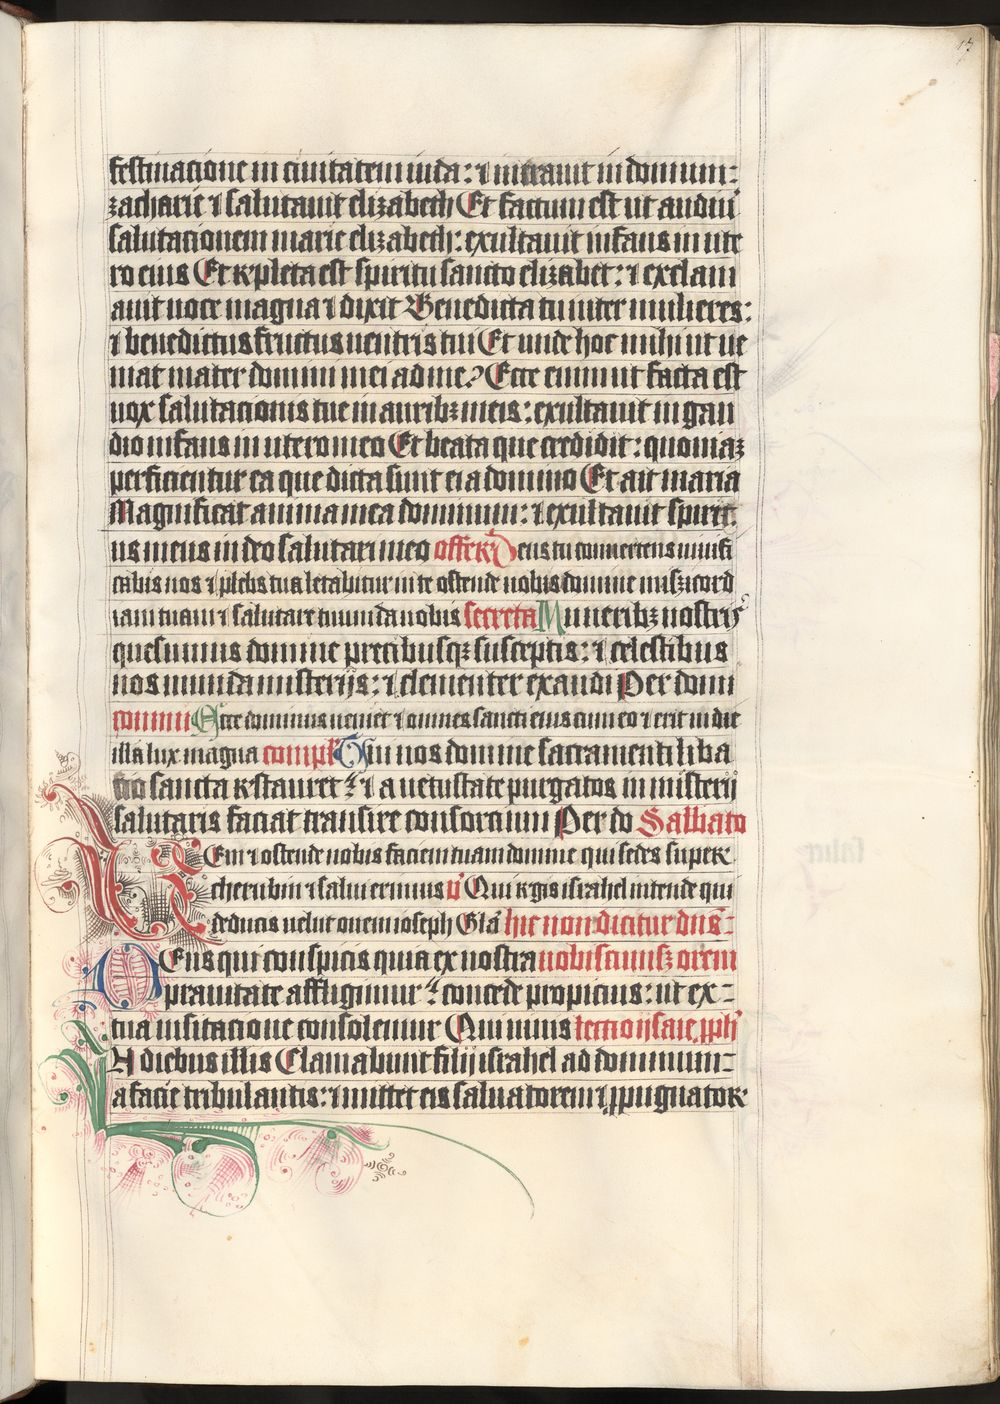 17
festinacione in ciuitatem iuda: ⁊ intrauit in domum:
zacharie ⁊ salutauit elizabeth Et factum est ut audiuit
salutacionem marie elizabeth: exultauit infans in ute
ro eius Et repleta est spiritu sancto elizabet: ⁊ exclam
auit uoce magna ⁊ dixit Benedicta tu inter mulieres:
⁊ benedictus fructus uentris tui Et unde hoc mihi ut ue
niat mater domini mei ad me? Ecce enim ut facta est
uox salutacionis tue in auribꝫ meis: exultauit in gau
dio infans in utero meo Et beata que credidit: quoniaꝫ
perficientur ea que dicta sunt ei a domino Et ait maria
Magnificat anima mea dominum: ⁊ exultauit spirit
us meus in deo salutari meo offer Deus tu conuertens uiuifi
cabis nos ⁊ plebs tua letabitur in te ostende nobis domine misꝫicord
iam tuam ⁊ salutare tuum da nobis secreta Muneribꝫ nostris
quesumus domine precibusqꝫ susceptis: ⁊ celestibus
nos munda misterijs: ⁊ clementer exaudi Per domi
commui Ecce dominus ueniet ⁊ omnes sancti eius cum eo ⁊ erit in die
illa lux magna compl Tui nos domine sacramenti liba
cio sancta restauret: ⁊ a uetustate purgatos in misterij
salutaris faciat transire consorcium Per do Sabbato
Veni ⁊ ostende nobis faciem tuam domine qui sedes super
cherubin ⁊ salui erimus v̓ Qui regis israhel intende qui
deducis uelut ouem ioseph Gla hic non dicitur dns:
Deus qui conspicis quia ex nostra uobiscumsꝫ orem
prauitate affligimur: concede propicius: ut ex:
tua uisitacione consolemur Qui uiuis lectio ysaie ꝓph
In diebus illis Clamabunt filij israhel ad dominum:
a facie tribulantis: ⁊ mittet eis saluatorem ⁊ ꝓpugnator